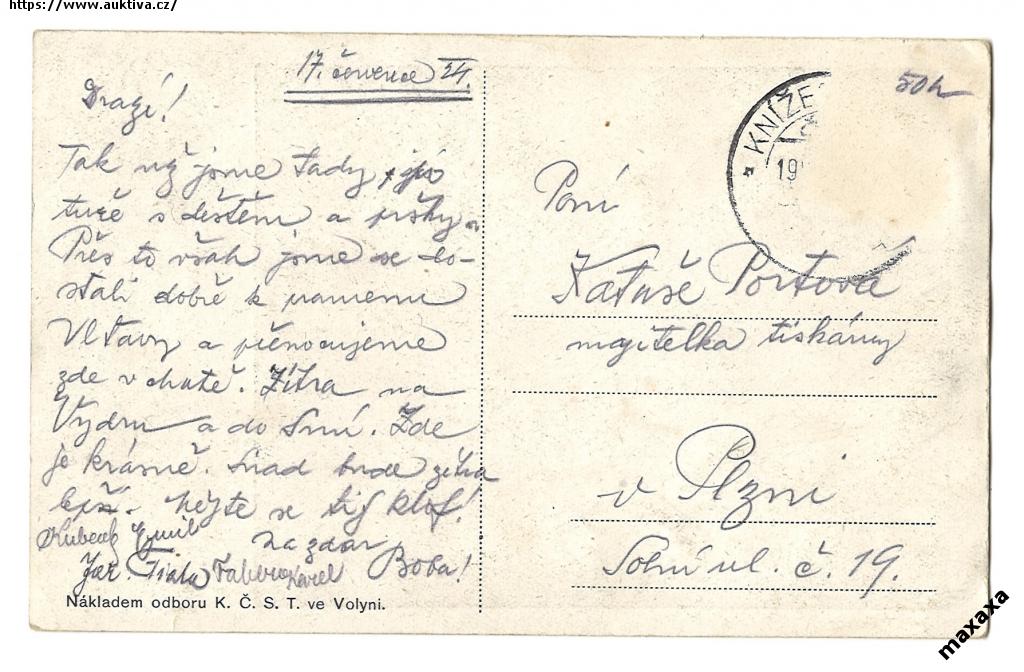 https://www.auktiva.cz/
17. července 24.
Drazí!
Tak už jsme tady, jsi
tuzě s deštěm a pršky
Přes to však jsme se do-
stali dobře k prameni
Vltavy a přenocujeme
zde v chatě. Zítra na
Vydru a do Srní. Zde
je krásně. Snad bude zítra
lepší. Mějte se
Na zdar Boba!
Kubeš Emil
Jar. Fiala Karel
Nákladem odboru K. Č. S. T. ve Volyni.
KNÍŽE
19
50 h
Paní
Katuše Portová
majitelka tiskárny
v Plzni
Solní ul. č. 19.
maxaxa